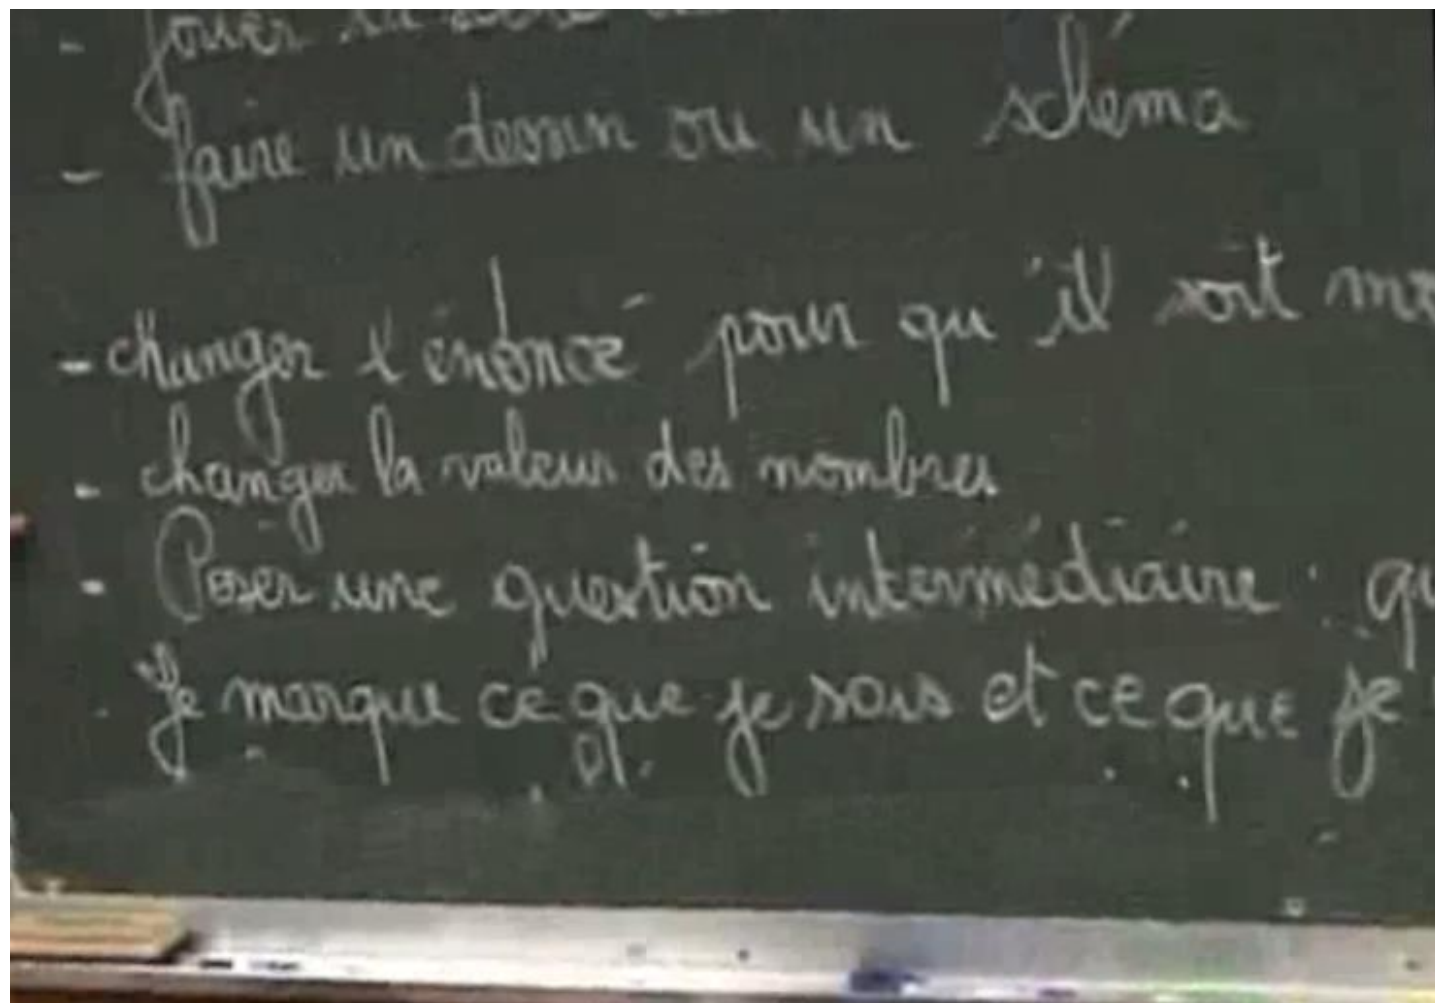 - jouer la
- faire un dessin ou un schéma
- changer l'énoncé pour qu'il soit
- changer la valeur des nombres
- Poser une question intermédiaire :
- Je marque ce que je sais et ce que je